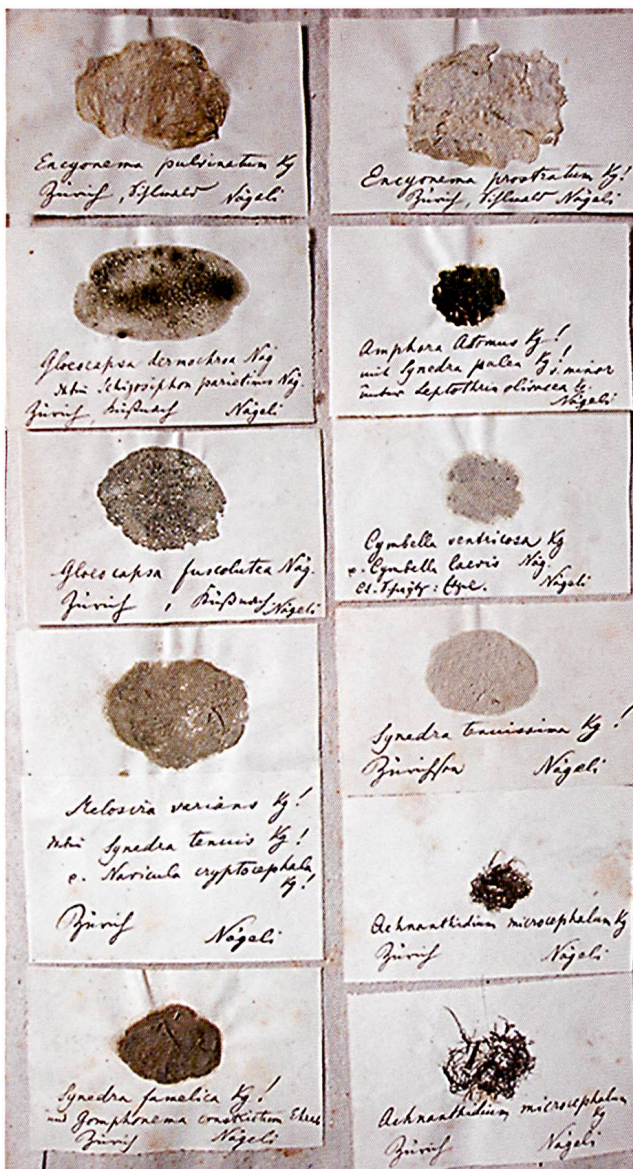 Encyonema pulvinatum Kg
Zürich, Sihlwald Nägeli
Gloeocapsa dermochroa Näg
Schizosiphon parietinus Näg.
Zürich, Küßnach Nägeli
Gloeocapsa fuscolutea Näg.
Zürich, Küßnach Nägeli
Melosira varians Kg!
Synedra tenuis Kg!
e. Navicula cryptocephala
Kg!
Zürich Nägeli
Synedra famelica Kg!
und Gomphonema constrictum Ehrb
Zürich Nägeli
Encyonema prostratum Kg!
Zürich, Sihlwald Nägeli
Amphora Atomus Kg!
mit Synedra palea Kg! v. minor
unter Leptothrix olivacea
Nägeli
Cymbella ventricosa Kg
e. Cymbella laevis Näg.
Nägeli
Synedra tenuissima Kg!
Zürichsee Nägeli
Achnanthidium microcephalum Kg
Zürich Nägeli
Achnanthidium microcephalum
Kg
Zürich Nägeli